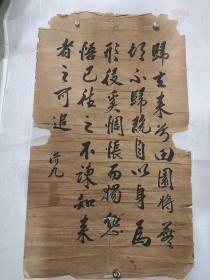 歸去來兮田園將蕪
胡不歸既自以身為
形役奚惆悵而獨悲
悟已往之不諫知來
者之可追